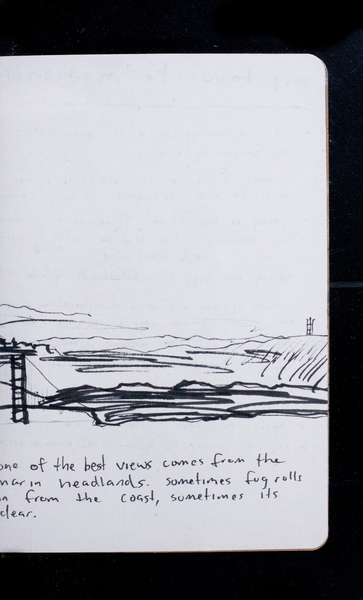 one of the best views comes from the
marin headlands. sometimes fog rolls
in from the coast, sometimes its
clear.